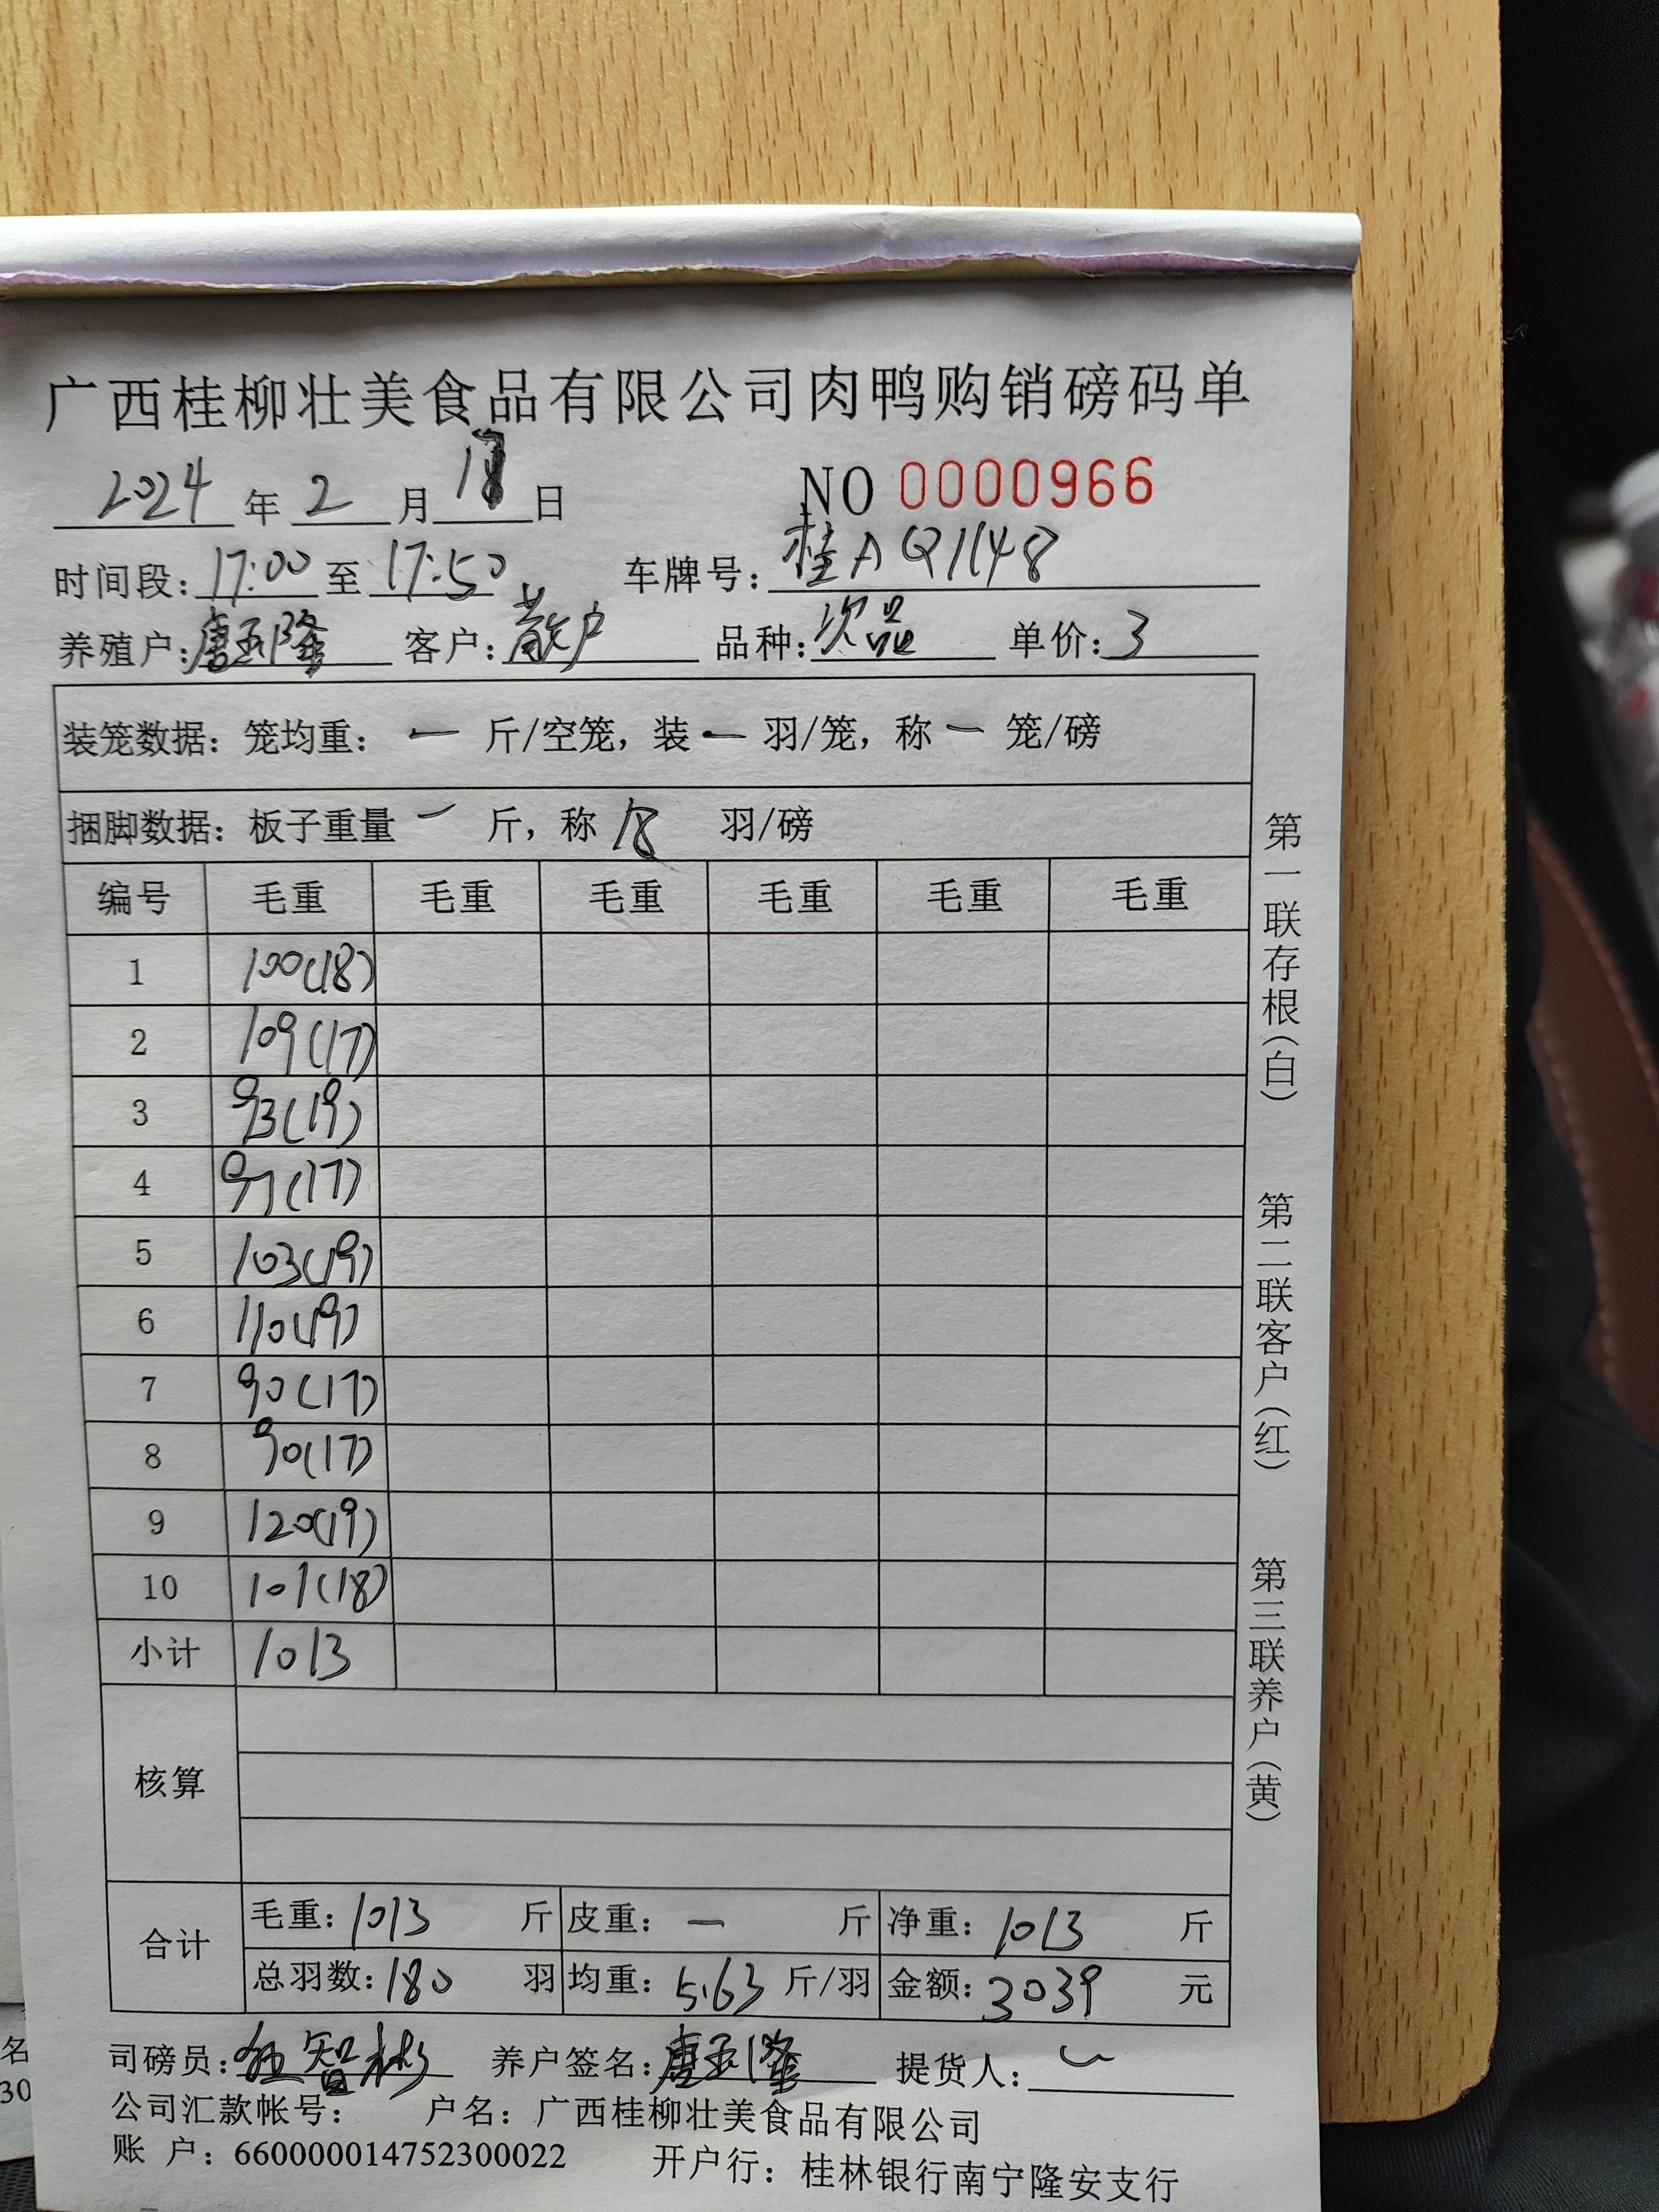 广西桂柳壮美食品有限公司肉鸭购销磅码单
2024 年 2 月 18 日 NO 0000966
时间段: 17:00 至 17:50 车牌号: 桂A Q1148
养殖户: 唐玉隆 客户: 散户 品种: 次品 单价: 3
装笼数据: 笼均重: 一 斤/空笼, 装 一 羽/笼, 称 一 笼/磅
捆脚数据: 板子重量 一 斤, 称 18 羽/磅
编号 毛重 毛重 毛重 毛重 毛重 毛重
1 100(18)
2 109(17)
3 93(19)
4 97(17)
5 103(19)
6 110(19)
7 90(17)
8 90(17)
9 120(19)
10 101(18)
小计 1013
核算
合计
毛重: 1013 斤 皮重: 一 斤 净重: 1013 斤
总羽数: 180 羽 均重: 5.63 斤/羽 金额: 3039 元
司磅员: 智彬 养户签名: 唐玉隆 提货人:
公司汇款帐号: 户名: 广西桂柳壮美食品有限公司
账 户: 660000014752300022 开户行: 桂林银行南宁隆安支行
第一联存根(白)
第二联客户(红)
第三联养户(黄)
名
30